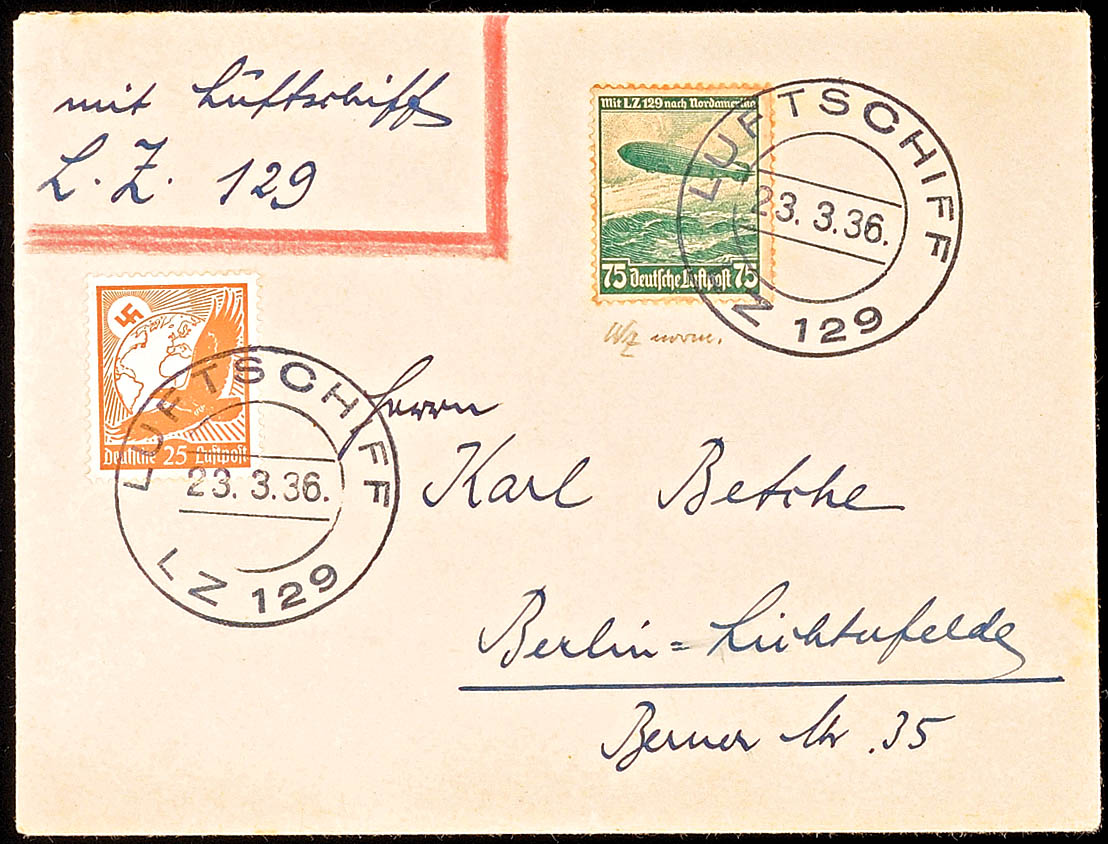 mit Luftschiff
L. Z. 129
Mit LZ 129 nach Nordamerika
75 Deutsche Luftpost 75
LUFTSCHIFF
23. 3. 36.
LZ 129
Wz norm.
Deutsche 25 Luftpost
LUFTSCHIFF
23. 3. 36.
LZ 129
Herrn
Karl Betche
Berlin=Lichterfelde
Berner Str. 35